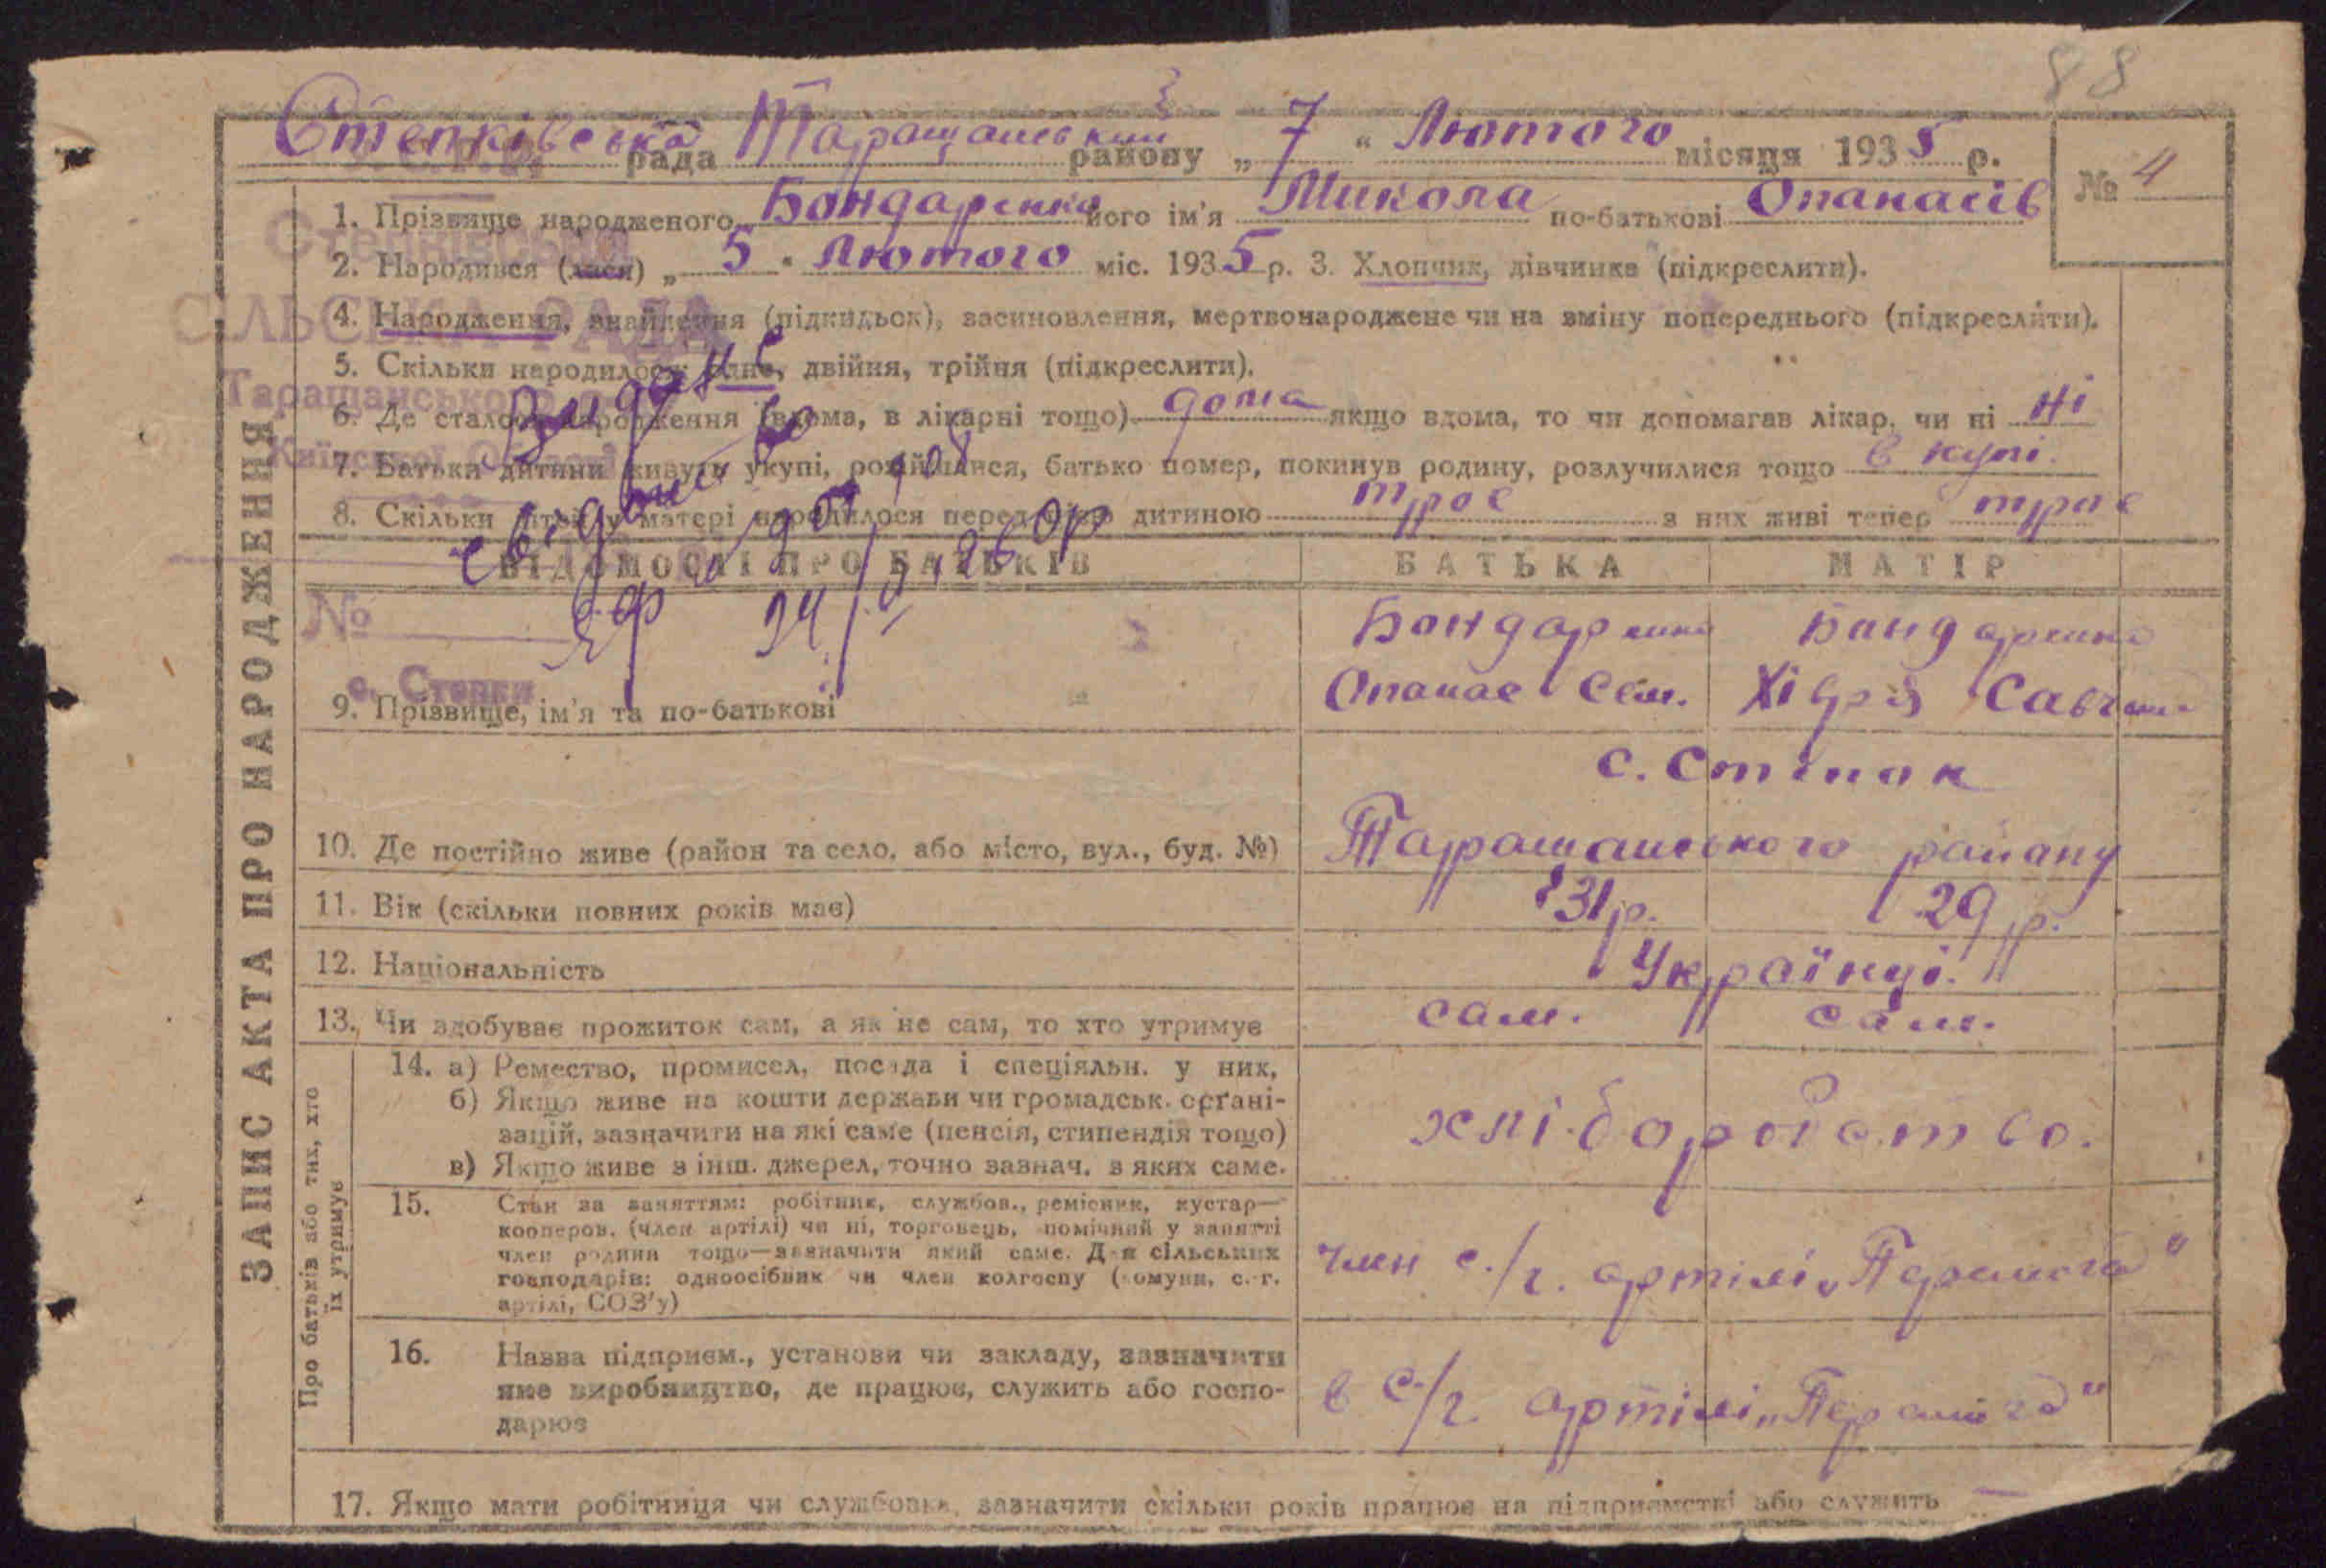 88
Степківська рада Таращанський району „ 7 “ Лютого місяця 1935 р.
№ 4
1. Прізвище народженого Бондаренко його ім'я Микола по-батькові Опанасів
2. Народився (лася) „ 5 “ Лютого міс. 1935 р. 3. Хлопчик, дівчинка (підкреслити).
4. Народження, знайдення (підкидьок), засиновлення, мертвонароджене чи на зміну попереднього (підкреслити).
5. Скільки народилось: одне, двійня, трійня (підкреслити).
6. Де сталось народження (вдома, в лікарні тощо) дома якщо вдома, то чи допомагав лікар, чи ні ні
7. Батьки дитини живуть укупі, розійшлися, батько помер, покинув родину, розлучилися тощо в купі.
8. Скільки дітей у матері народилося перед цією дитиною троє з них живі тепер троє
Степківська
СІЛЬСЬКА РАДА
Таращанського
Київської Області
№
с. Степки
ЗАПИС АКТА ПРО НАРОДЖЕННЯ
ВІДОМОСТІ ПРО БАТЬКІВ БАТЬКА МАТІР
Бондаренко Бондаренко
9. Прізвище, ім'я та по-батькові Опанас Сем. Хівря
с. Степок
10. Де постійно живе (район та село, або місто, вул., буд. №) Таращанського району
11. Вік (скільки повних років має) 31 р. 29 р.
12. Національність Українці.
13. Чи здобуває прожиток сам, а як не сам, то хто утримує сам. сам.
Про батьків або тих, хто
їх утримує
14. а) Ремество, промисел, посада і спеціяльн. у них,
б) Якщо живе на кошти держави чи громадськ. орґані-
зацій, зазначити на які саме (пенсія, стипендія тощо)
в) Якщо живе з інш. джерел, точно зазнач. з яких саме.
хліборобство.
15. Стан за заняттям: робітник, службов., ремісник, кустар—
кооперов. (член артілі) чи ні, торговець, помічний у занятті
член родини тощо—зазначити який саме. Для сільських
господарів: одноосібник чи член колгоспу (комуни, с.-г.
артілі, СОЗ'у)
член с./г. артілі „Перемога“
16. Назва підприєм., установи чи закладу, зазначити
яке виробництво, де працює, служить або госпо-
дарює
в с/г артілі „Перемога“
17. Якщо мати робітниця чи службовка, зазначити скільки років працює на підприємстві або служить